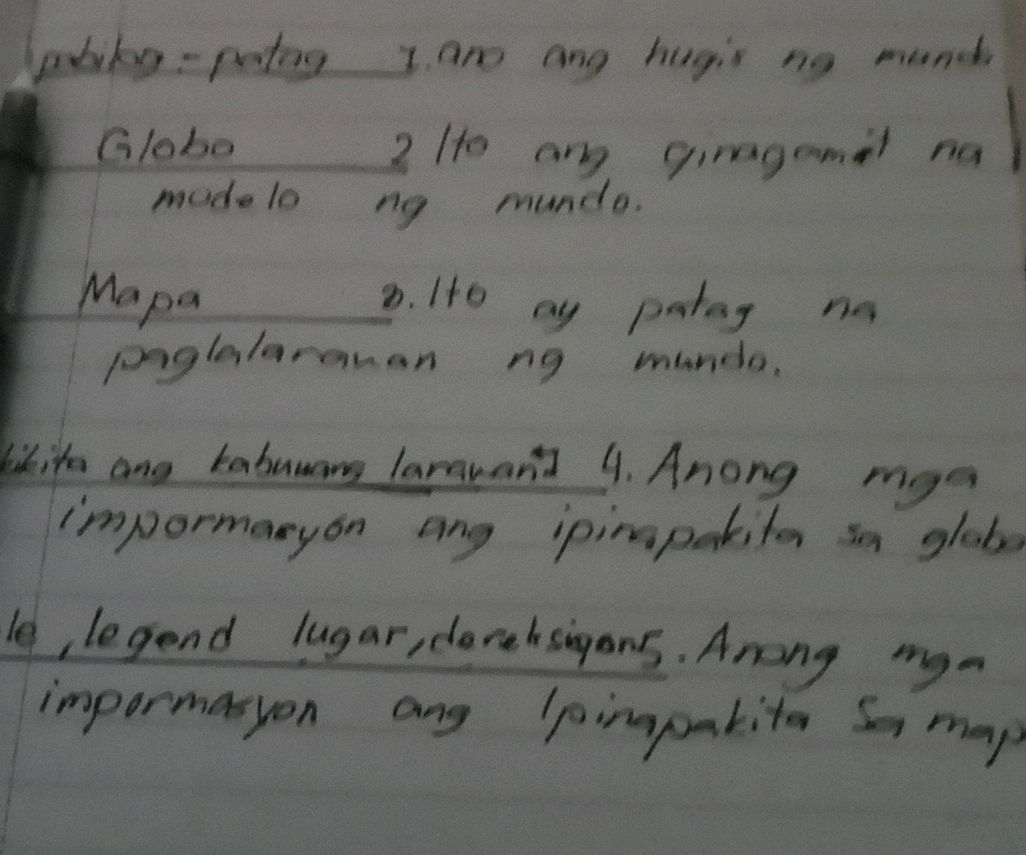 pabilog = patag 1. ano ang hugis ng mund
Globo 2 Ito ang ginagamit na
modelo ng mundo.
Mapa 3. Ito ay patag na
paglalarawan ng mundo.
kikita ang kabuuang larawan 4. Anong mga
impormasyon ang ipinapakita sa globo
le, legend lugar, dereksiyon 5. Anong mga
impormasyon ang Ipinapakita Sa map